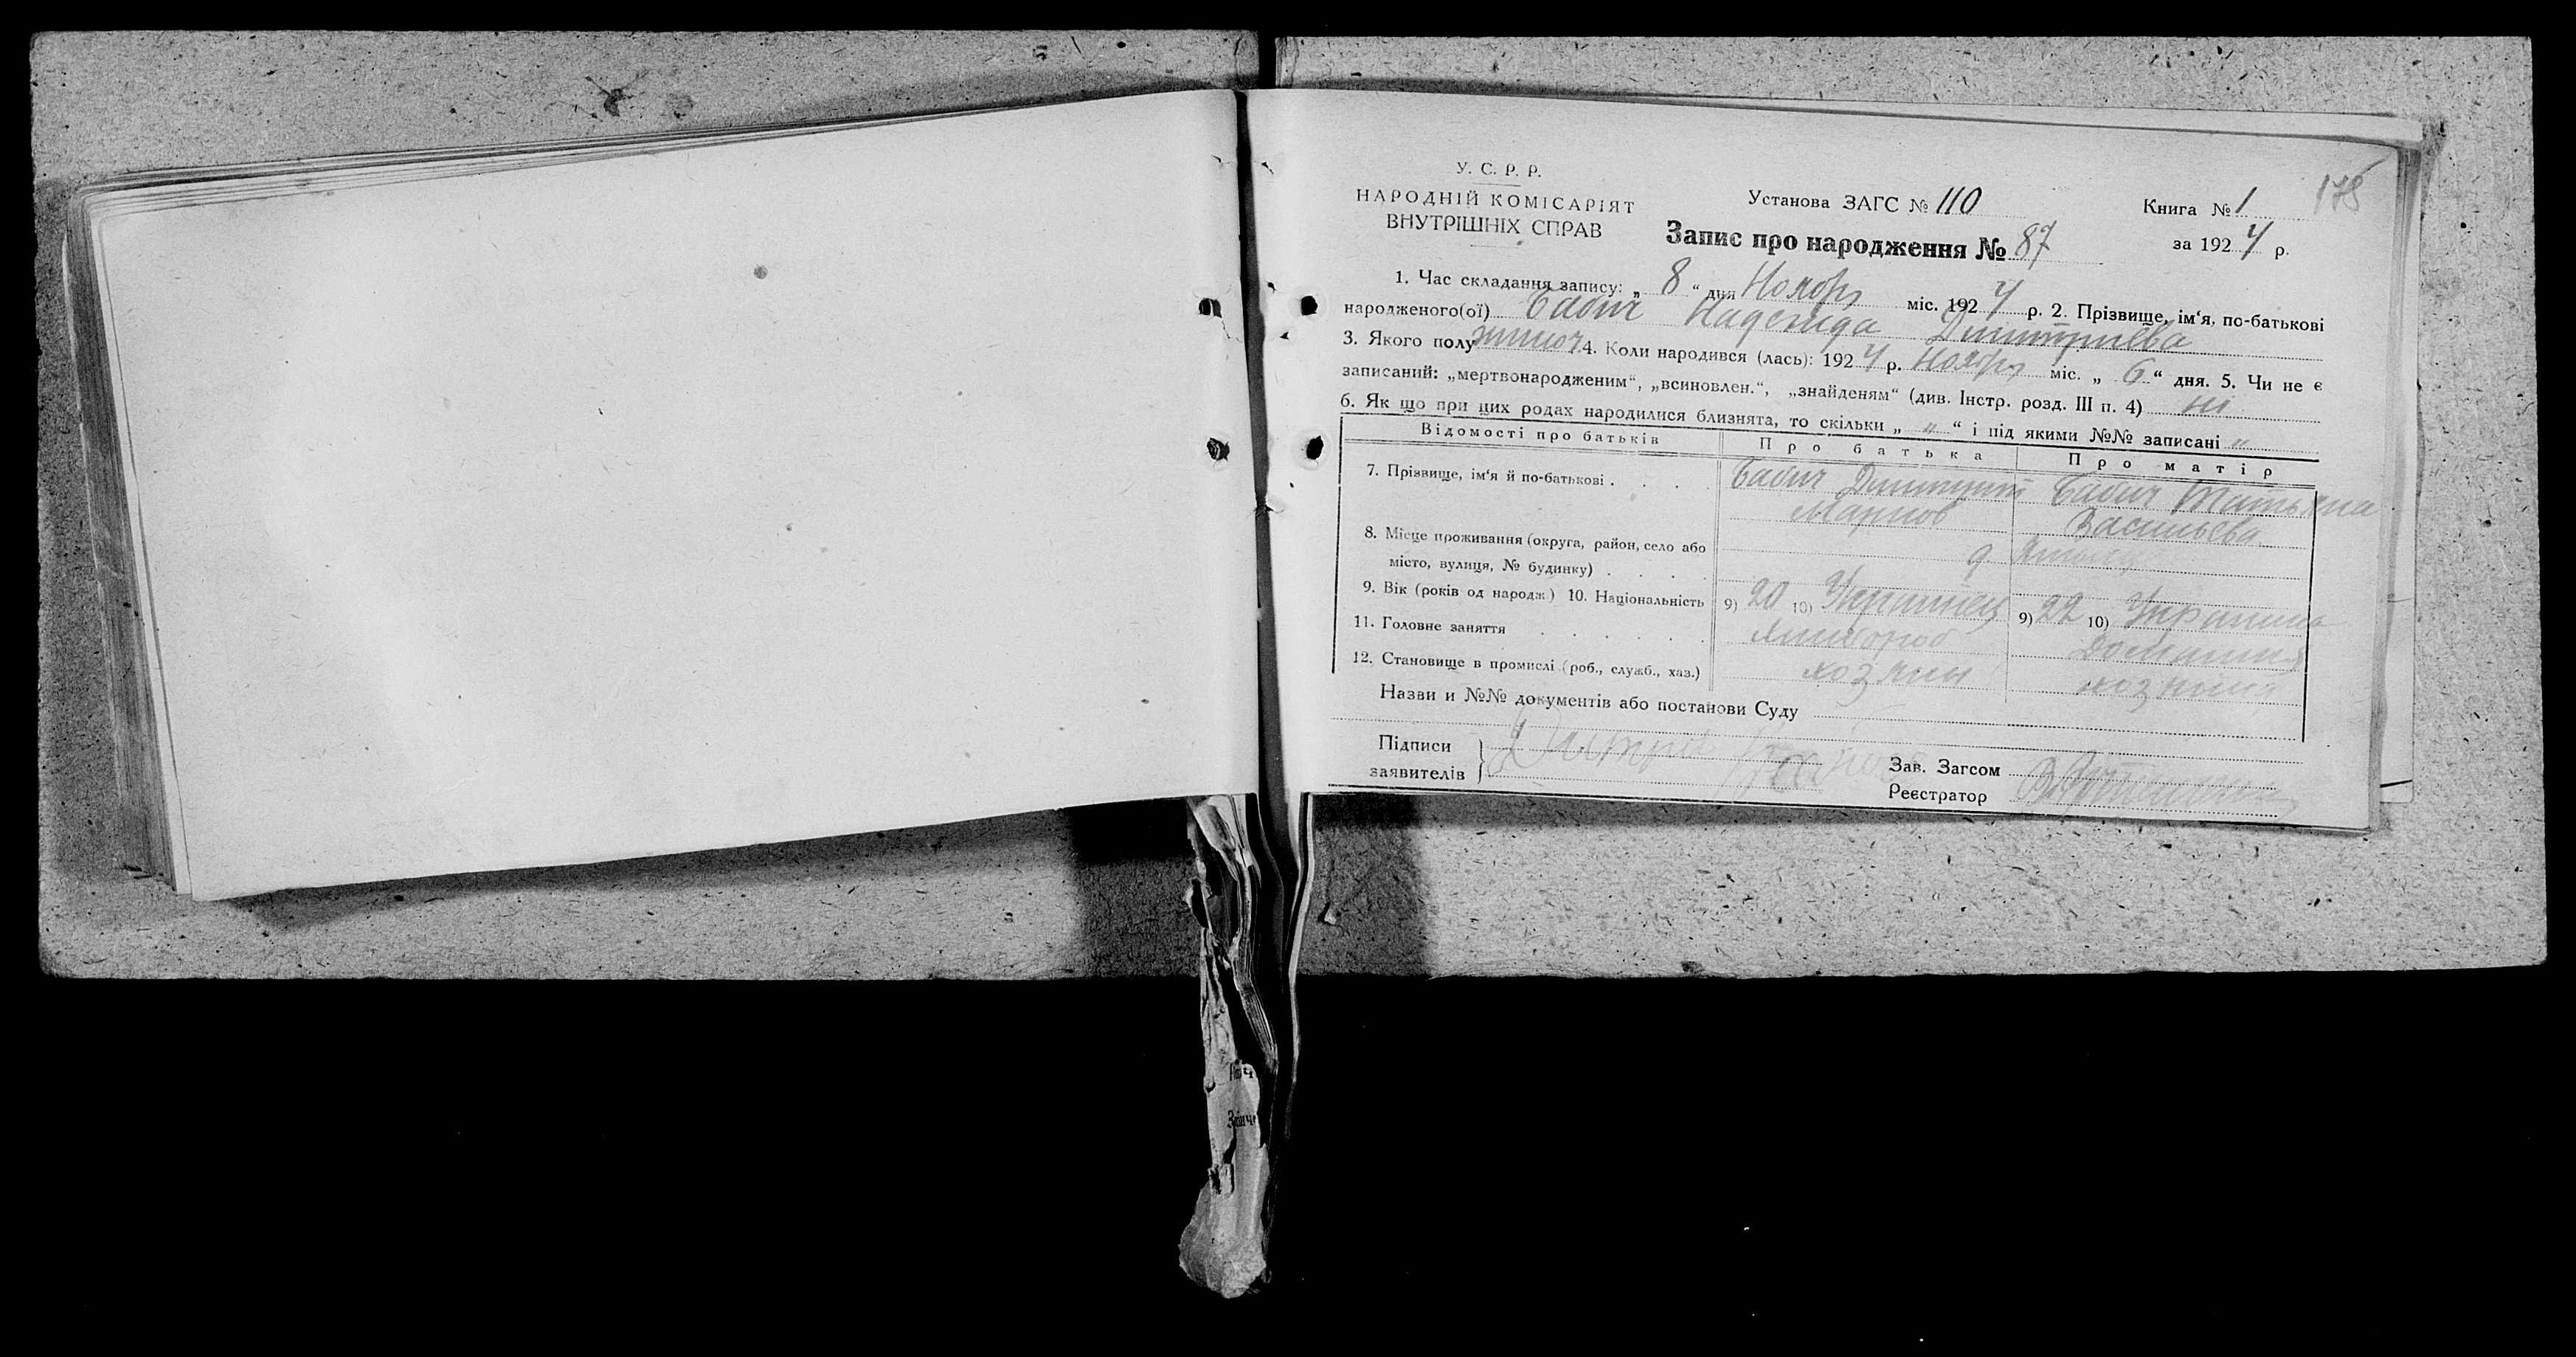 175
У. С. Р. Р.
НАРОДНІЙ КОМІСАРІЯТ
ВНУТРІШНІХ СПРАВ
Установа ЗАГС № 110
Книга № 1
Запис про народження № 87
за 1924 р.
1. Час складання запису: „ 8 “ дня Ноября міс. 1924 р. 2. Прізвище, ім‘я, по-батькові
народженого(ої) Бабич Надежда Дмитриева
3. Якого полу 4. Коли народився (лась): 1924 р. Ноября міс. „ 6 “ дня. 5. Чи не є
записаний: „мертвонародженим“, „всиновлен.“, „знайденям“ (див. Інстр. розд. III п. 4) ні
6. Як що при цих родах народилися близнята, то скільки „ “ “ і під якими №№ записані “
Відомості про батьків Про батька Про матір
7. Прізвище, ім‘я й по-батькові . . . . Бабич Дмитрий Бабич Татьяна
Марков Васильева
8. Місце проживання (округа, район, село або
місто, вулиця, № будинку) . . . .
9. Вік (років од народж.) 10. Національність 9) 20 10) Украинец 9) 22 10) Украинка
11. Головне заняття . . . . . . Хлибороб Домашня
12. Становище в промислі (роб., служб., хаз.) хозяин
Назви и №№ документів або постанови Суду
Підписи
заявителів
Дмитрий Бабич
Зав. Загсом
Реєстратор